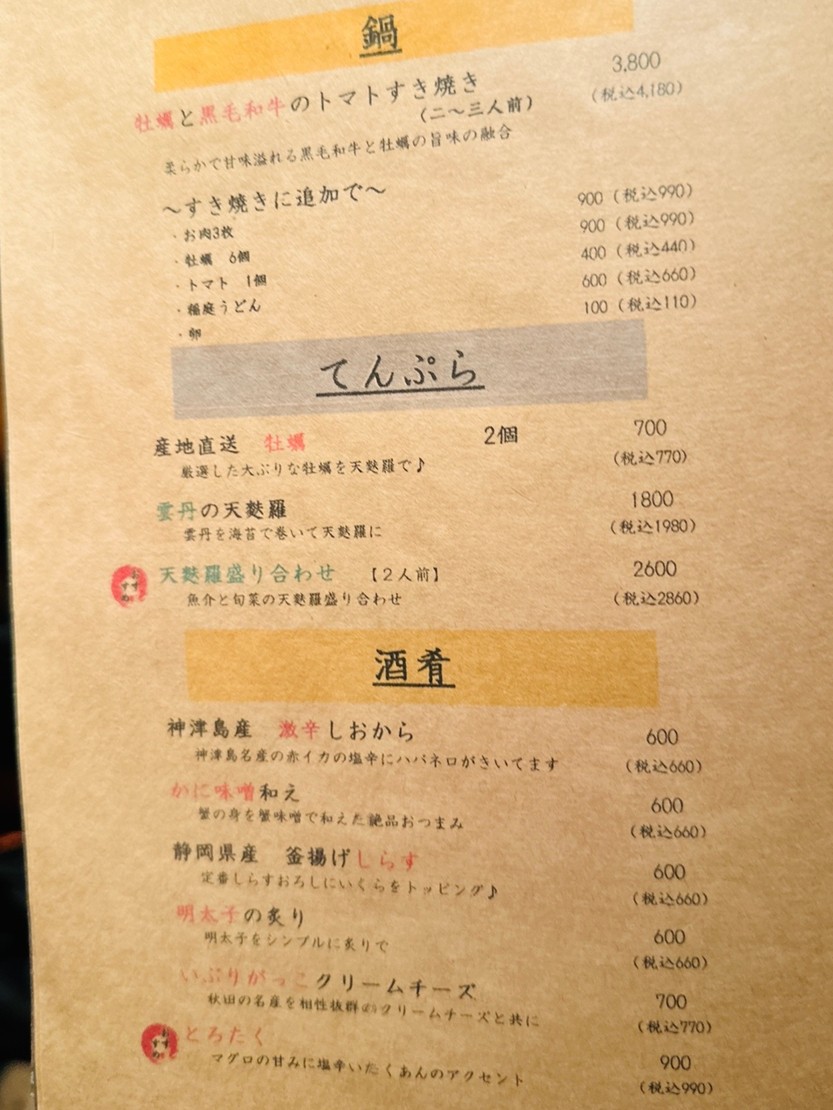 鍋
牡蠣と黒毛和牛のトマトすき焼き 3,800
(二〜三人前) (税込4,180)
柔らかで甘味溢れる黒毛和牛と牡蠣の旨味の融合
〜すき焼きに追加で〜
・お肉3枚 900 (税込990)
・牡蠣 6個 900 (税込990)
・トマト 1個 400 (税込440)
・稲庭うどん 600 (税込660)
・卵 100 (税込110)
てんぷら
産地直送 牡蠣 2個 700
厳選した大ぶりな牡蠣を天麩羅で♪ (税込770)
雲丹の天麩羅 1800
雲丹を海苔で巻いて天麩羅に (税込1980)
おすすめ 天麩羅盛り合わせ 【2人前】 2600
魚介と旬菜の天麩羅盛り合わせ (税込2860)
酒肴
神津島産 激辛しおから 600
神津島名産の赤イカの塩辛にハバネロがきいてます (税込660)
かに味噌和え 600
蟹の身を蟹味噌で和えた絶品おつまみ (税込660)
静岡県産 釜揚げしらす 600
定番しらすおろしにいくらをトッピング♪ (税込660)
明太子の炙り 600
明太子をシンプルに炙りで (税込660)
いぶりがっこクリームチーズ 700
秋田の名産を相性抜群のクリームチーズと共に (税込770)
おすすめ とろたく 900
マグロの甘みに塩辛いたくあんのアクセント (税込990)